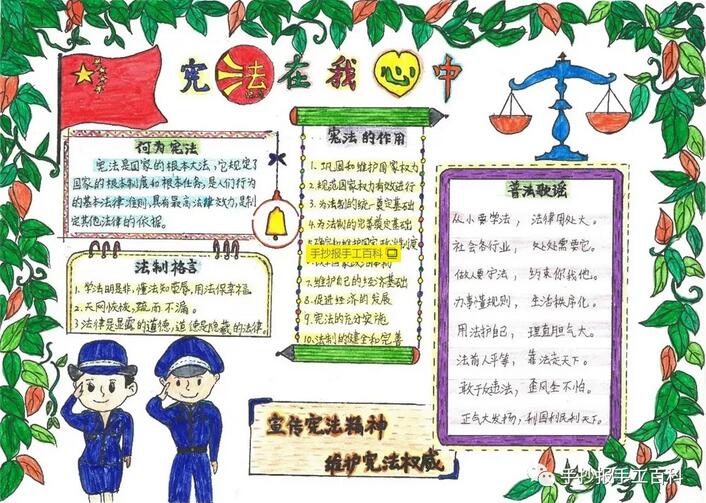 宪法在我心中
何为宪法
宪法是国家的根本大法，它规定了
国家的根本制度和根本任务，是人们行为
的基本法律准则，具有最高法律效力，是制
定其他法律的依据。
法制格言
1.学法明是非，懂法知荣辱，用法保幸福
2.天网恢恢，疏而不漏。
3.法律是显露的道德，道德是隐藏的法律。
宪法的作用
1.巩固和维护国家权力
2.规范国家权力有效进行
3.为法制的统一奠定基础
4.为法制的完善奠定基础
手抄报手工百科
7.维护自己的经济基础
8.促进经济的发展
9.宪法的充分实施
10.法制的健全和完善
普法歌谣
从小要学法，法律用处大。
社会各行业，处处需要它。
做人要守法，约束你我他。
办事懂规则，生活秩序化。
用法护自己，理直胆气大。
法前人平等，靠法定天下。
敢于反违法，歪风全不怕。
正气大发扬，利国利民利天下。
宣传宪法精神
维护宪法权威
手抄报手工百科